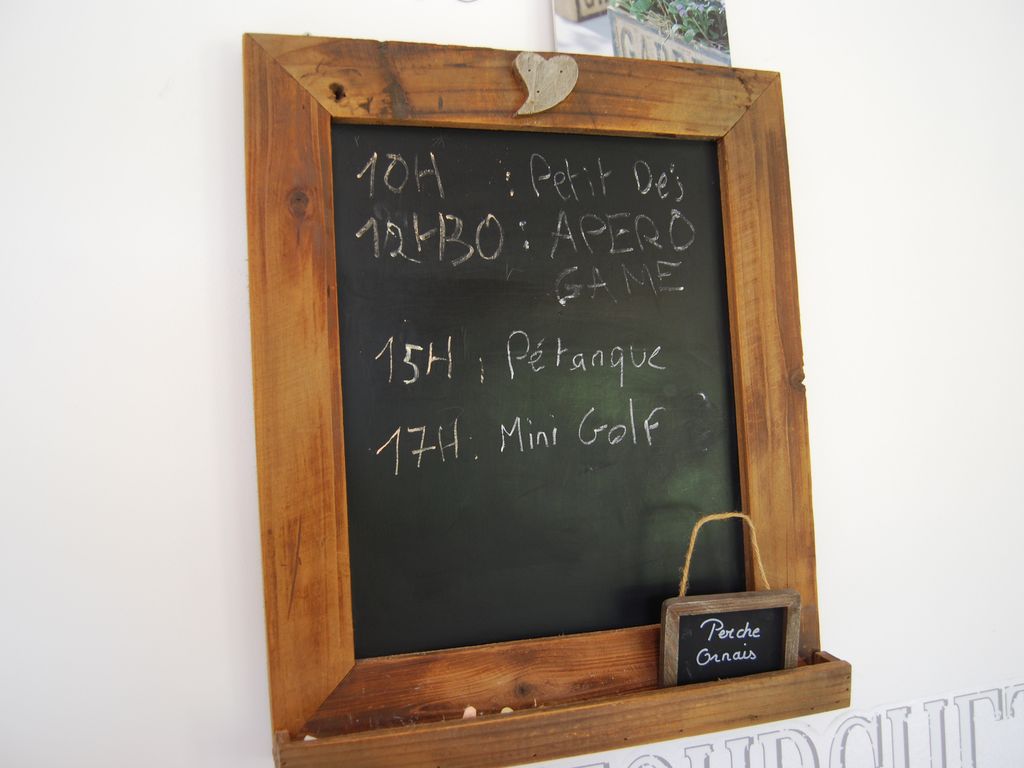 10H : Petit Dés
12H30 : APERO
GAME
15H : Pétanque
17H : Mini Golf
Perche
Ornais